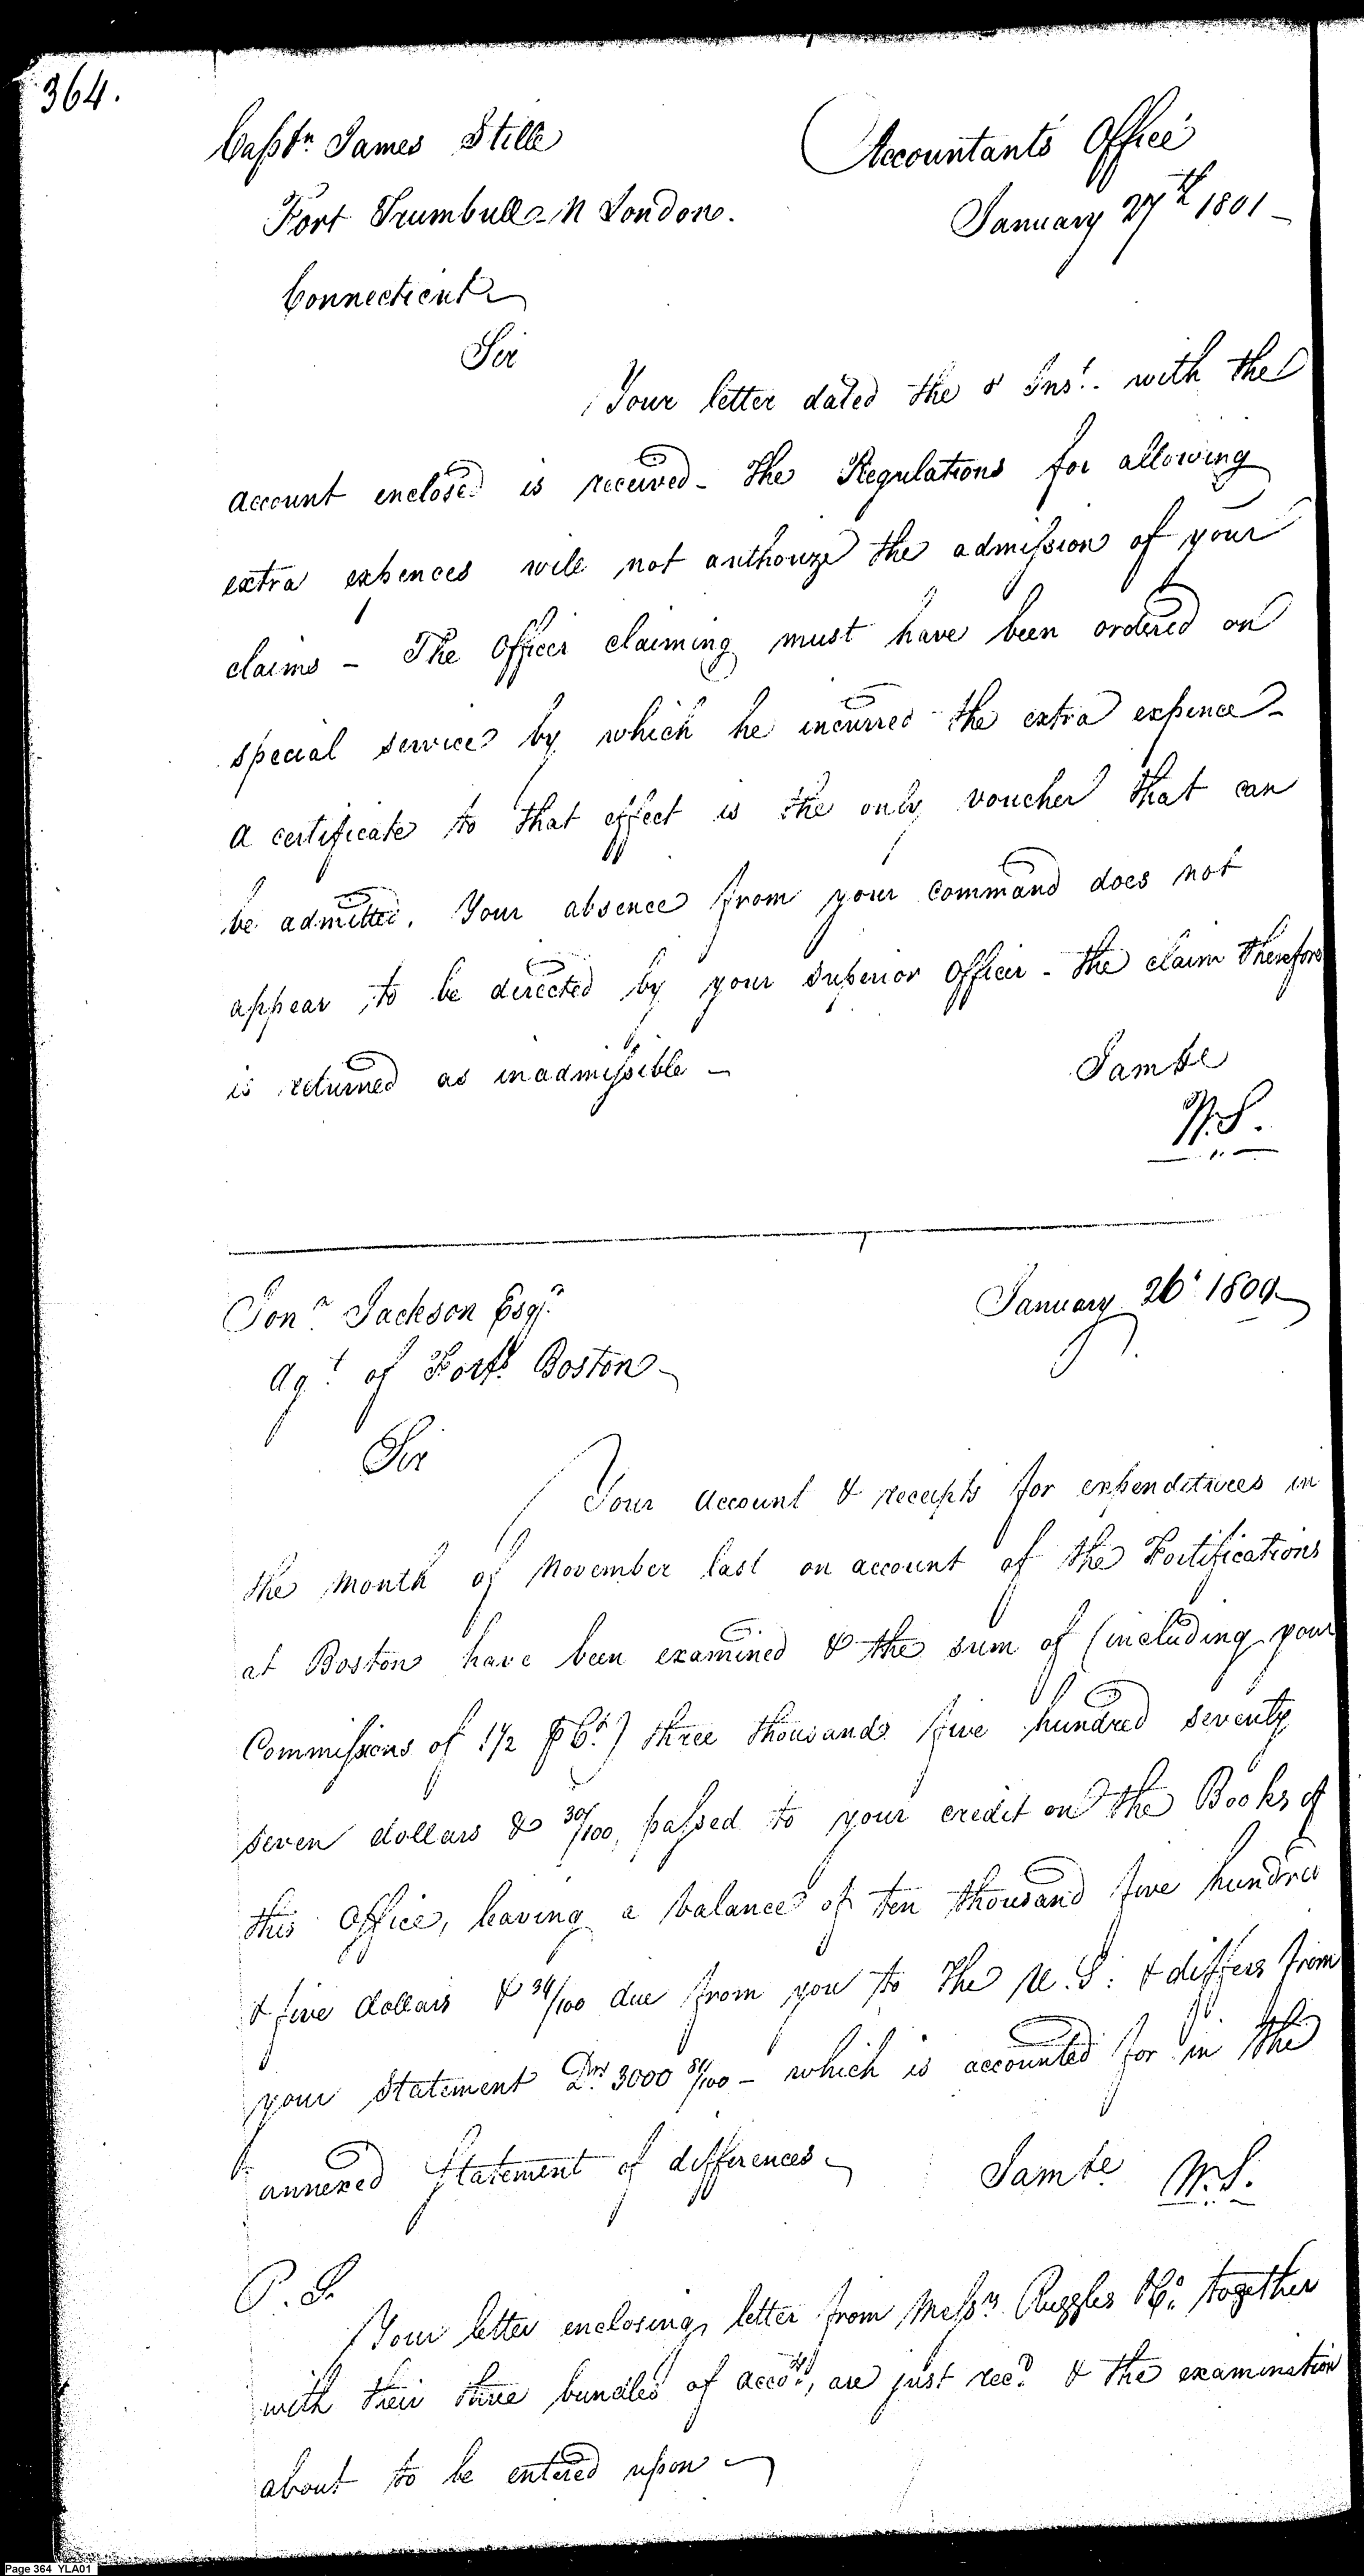 364.
Captn James Stille
Accountants Office
January 27th 1801
Fort Trumbull - N London.
Connecticut
Sir
Your letter dated the 8 Inst. with the
account enclosed is received - The Regulations for allowing
extra expences will not authorize the admission of your
claims - The Officer claiming must have been ordered on
special service by which he incurred the extra expence -
a certificate to that effect is the only voucher that can
be admitted. Your absence from your command does not
appear to be directed by your superior Officer - the claim therefore
is returned as inadmissible -
W.S.
Jonn. Jackson Esqr.
January 26
Agt. of Forts. Boston -
Sir
Your account & receipts for expenditures in
the month of November last on account of the Fortifications
at Boston have been examined & the sum of (including your
Commissions of 1 1/2 ⅌ Ct.) three thousand five hundred seventy
seven dollars & 30/100, passed to your credit on the Books of
this Office, leaving a balance of ten thousand five hundred
& five dollars & 34/100 due from you to the U.S: & differs from
your statement Drs. 3000 - which is accounted for in the
annexed Statement of differences -
W.S.
P.S.
Your letter enclosing letter from Messrs Ruggles &Co. together
with their three bundles of accots., are just recd. & the examination
about to be entered upon -
Page 364 YLA01